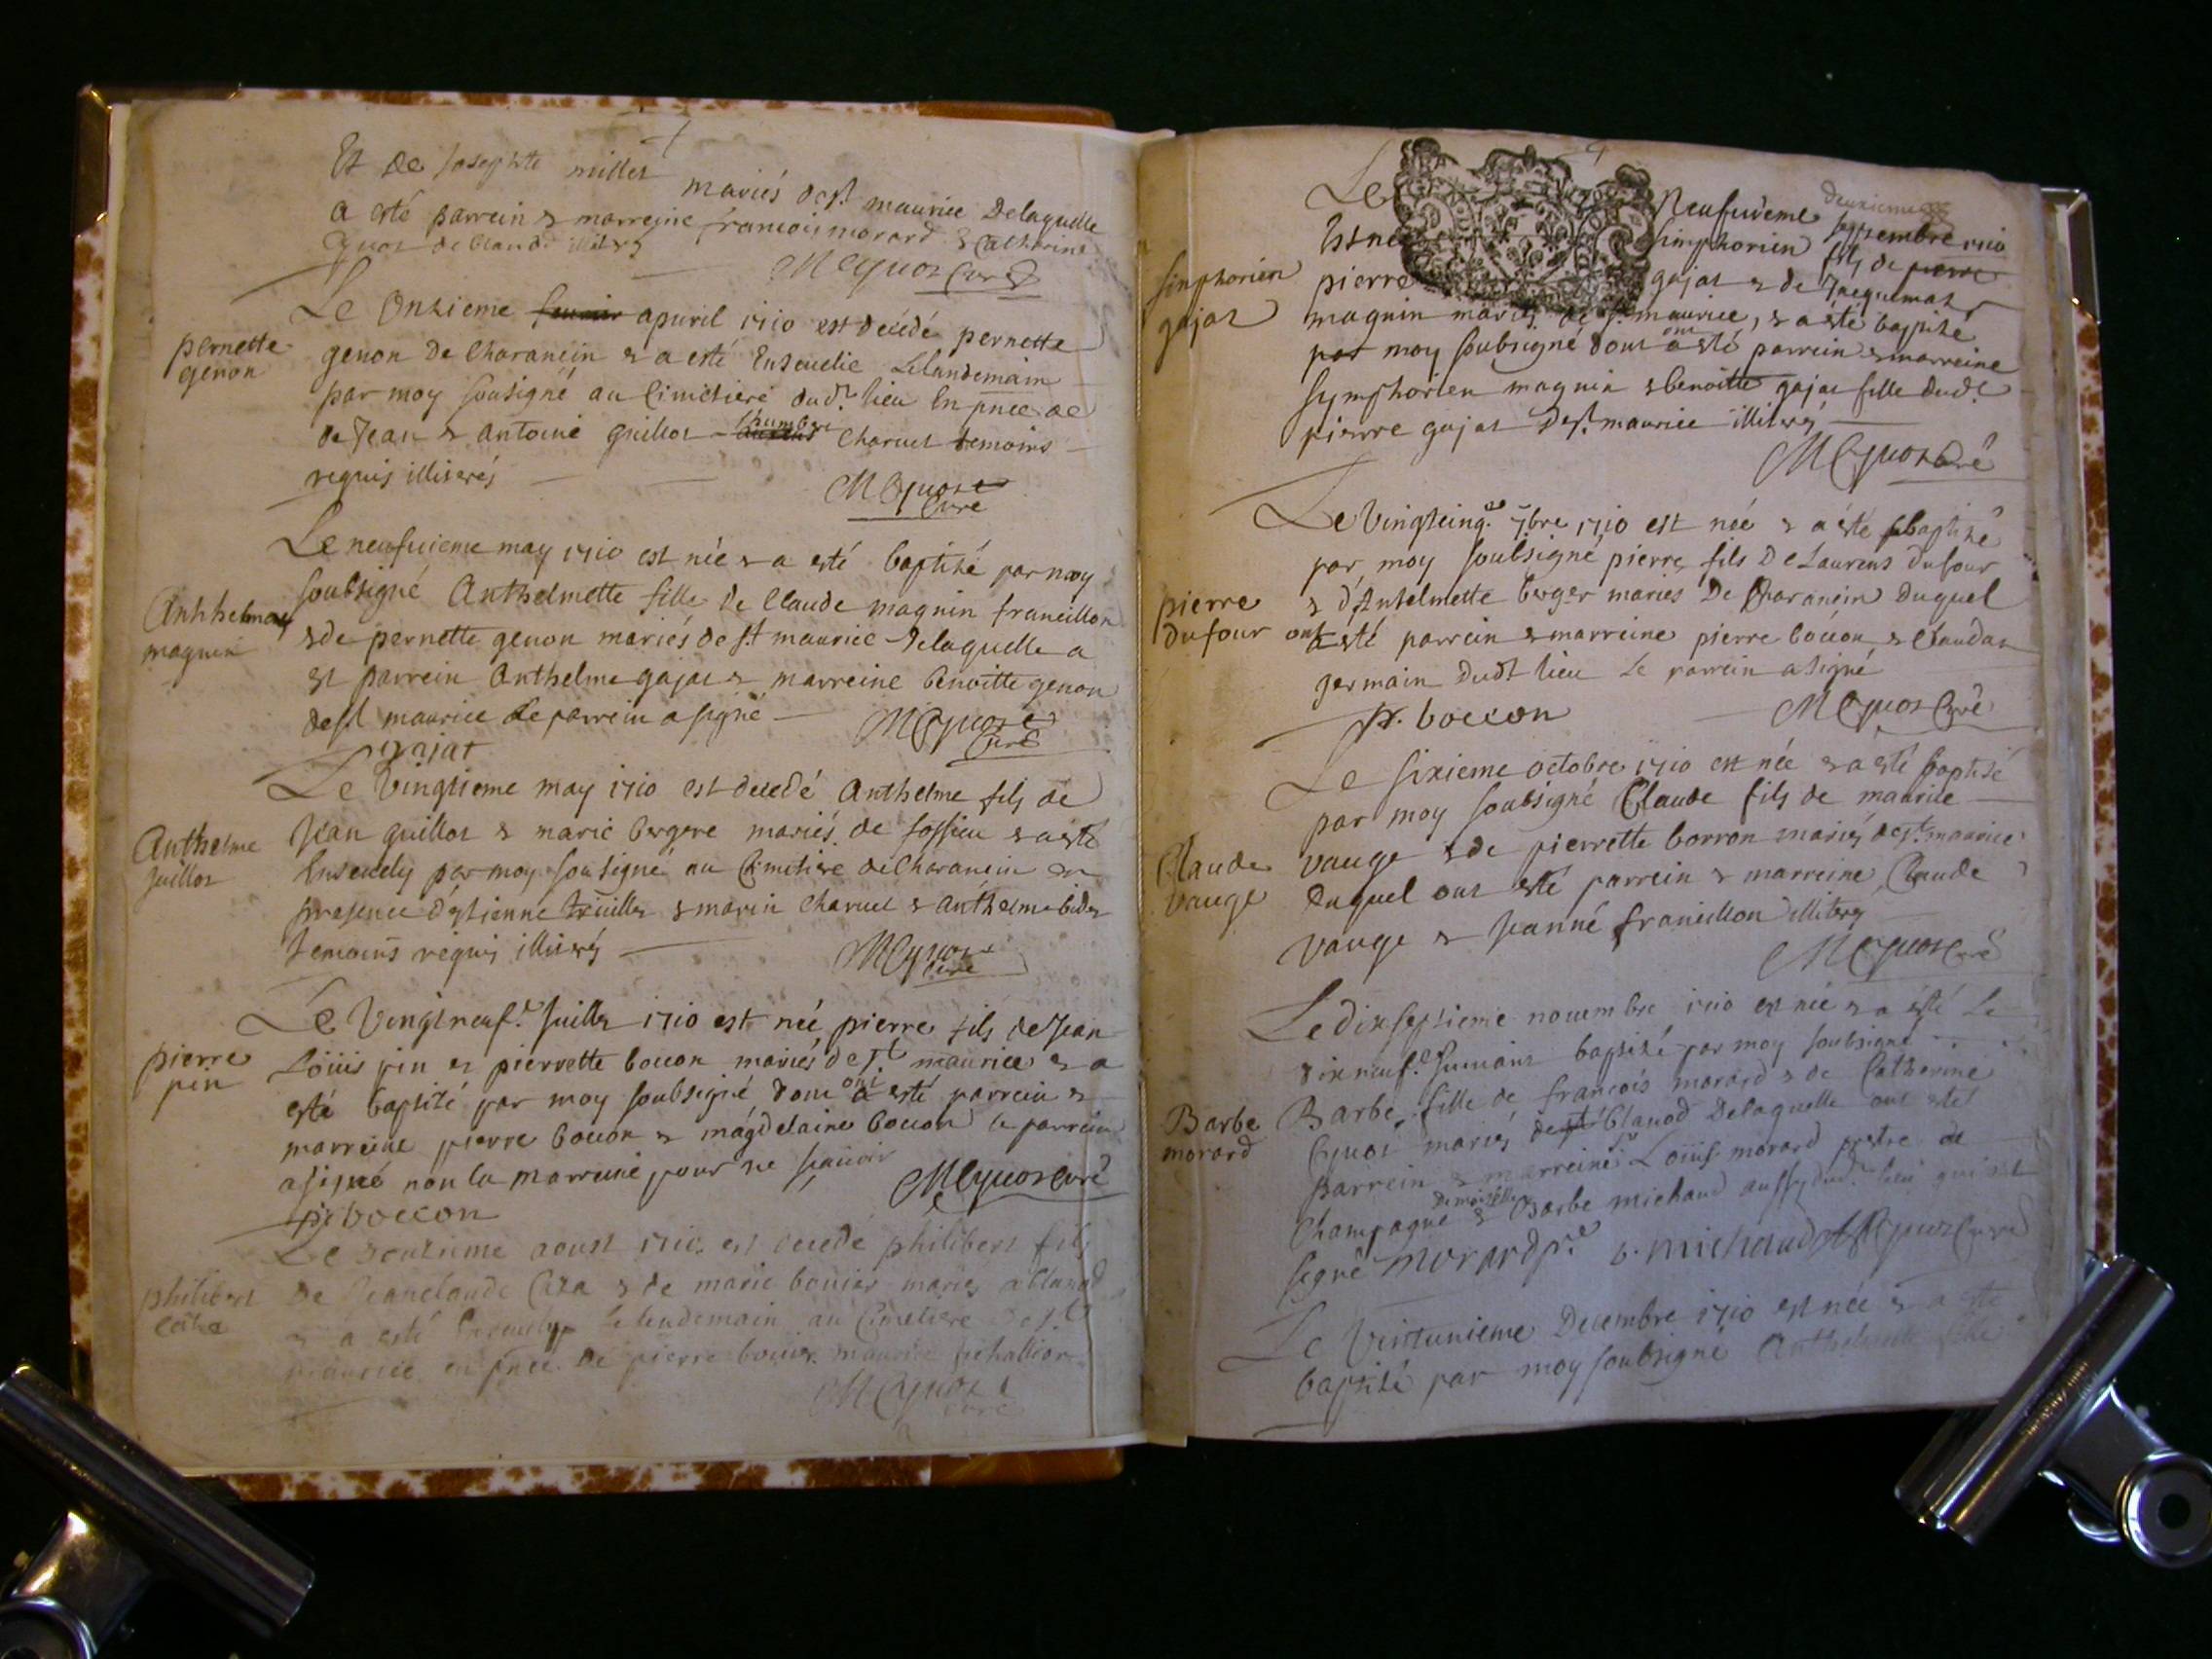 Et de Josephte millet
mariés de st maurice Delaquelle
a esté parrein & marreine francois morard & Catherine
Cyuot de Claude illiteres
MCyuot Curé
Le Onzieme apuril 1710 est décédé pernette
pernette
genon
genon De Charancin & a esté Enseuelie Lelandemain
par moy sousigné au Cimetiere dudt lieu En pnce de
de Jean & antoine guillot humbert Charuet temoins
requis illiterés
MCyuot
Curé
Le neufuieme may 1710 est née & a esté baptisé par moy
Anthelmay
magnin
soubsigné Anthelmette fille de Claude magnin francillon
& de pernette genon mariés de st maurice Delaquelle a
est parrein Anthelme gajat & marreine benoitte genon
dest maurice Le parrein a signé
MCyuot
Curé
gajat
Le Vingtieme may 1710 est décedé Anthelme fils de
Anthelme
guillot
Jean guillot & marie bergere mariés de fossieu & a esté
Enseuely par moy sousigné au Cimetiere de Charancin en
presence d'estienne truillet & marin Charuet & Anthelme bidet
temoins requis illiterés
MCyuot
Curé
Le Vingt neuf.e Juillet 1710 est née pierre fils de Jean
pierre
pin
Loüis pin et pierrette bocon mariés de st maurice & a
esté baptisé par moy soubsigné dont ont esté parrein &
marreine pierre bocon & magdelaine bocon le parrein
a signé non la marreine pour ne sçauoir
MCyuot Curé
p. boccon
Le aoust 1710 est decedé philibert fils
philibert
De Jeanclaude & de marie bouier mariés a blanod
& a esté Enseuely Lelendemain au Cimetiere de st
maurice en pnce de pierre bouier maurice
MCyuot
Curé
Le Neufuieme deuxieme septembre 1710
Est née simphorien fils de pierre
simphorien
gajat
pierre gajat & de Jaquemaz
magnin mariés de st maurice, & a esté baptisé
par moy soubsigné dont ont esté parrein & marreine
symphorien magnin & benoitte gajat fille dudt
pierre gajat dest maurice illiterés
MCyuot Curé
Le Vingtcinq.e 7bre 1710 est née & a esté baptisé
par moy soubsigné pierre fils De Laurens dufour
pierre
dufour
& d'Antelmette berger mariés De Charancin duquel
ont esté parrein & marreine pierre bocon & Claudaz
germain dudt lieu Le parrein a signé
p. boccon
MCyuot Curé
Le sixieme octobre 1710 est née & a esté baptisé
par moy soubsigné Claude fils de maurice
Claude
vauge
vauge & de pierrette borron mariés de st maurice
Duquel ont esté parrein & marreine Claude
vauge & Jeanne francillon illiteres
MCyuot Curé
Le dix septieme nouembre 1710 est née & a esté Le
dix neuf.e suiuant baptisé par moy soubsigné
Barbe
morard
Barbe, fille de francois morard & de Catherine
Cyuot mariés de blanod Delaquelle ont esté
parrein & marreine Sr Loüis morard prestre de
Champagne & demoiselle Barbe michaud aussy dudt lieu qui ont
signé morard p.e b. michaud MCyuot Curé
Le Vintunieme Decembre 1710 est née & a esté
baptisé par moy soubsigné Anthelmette fille